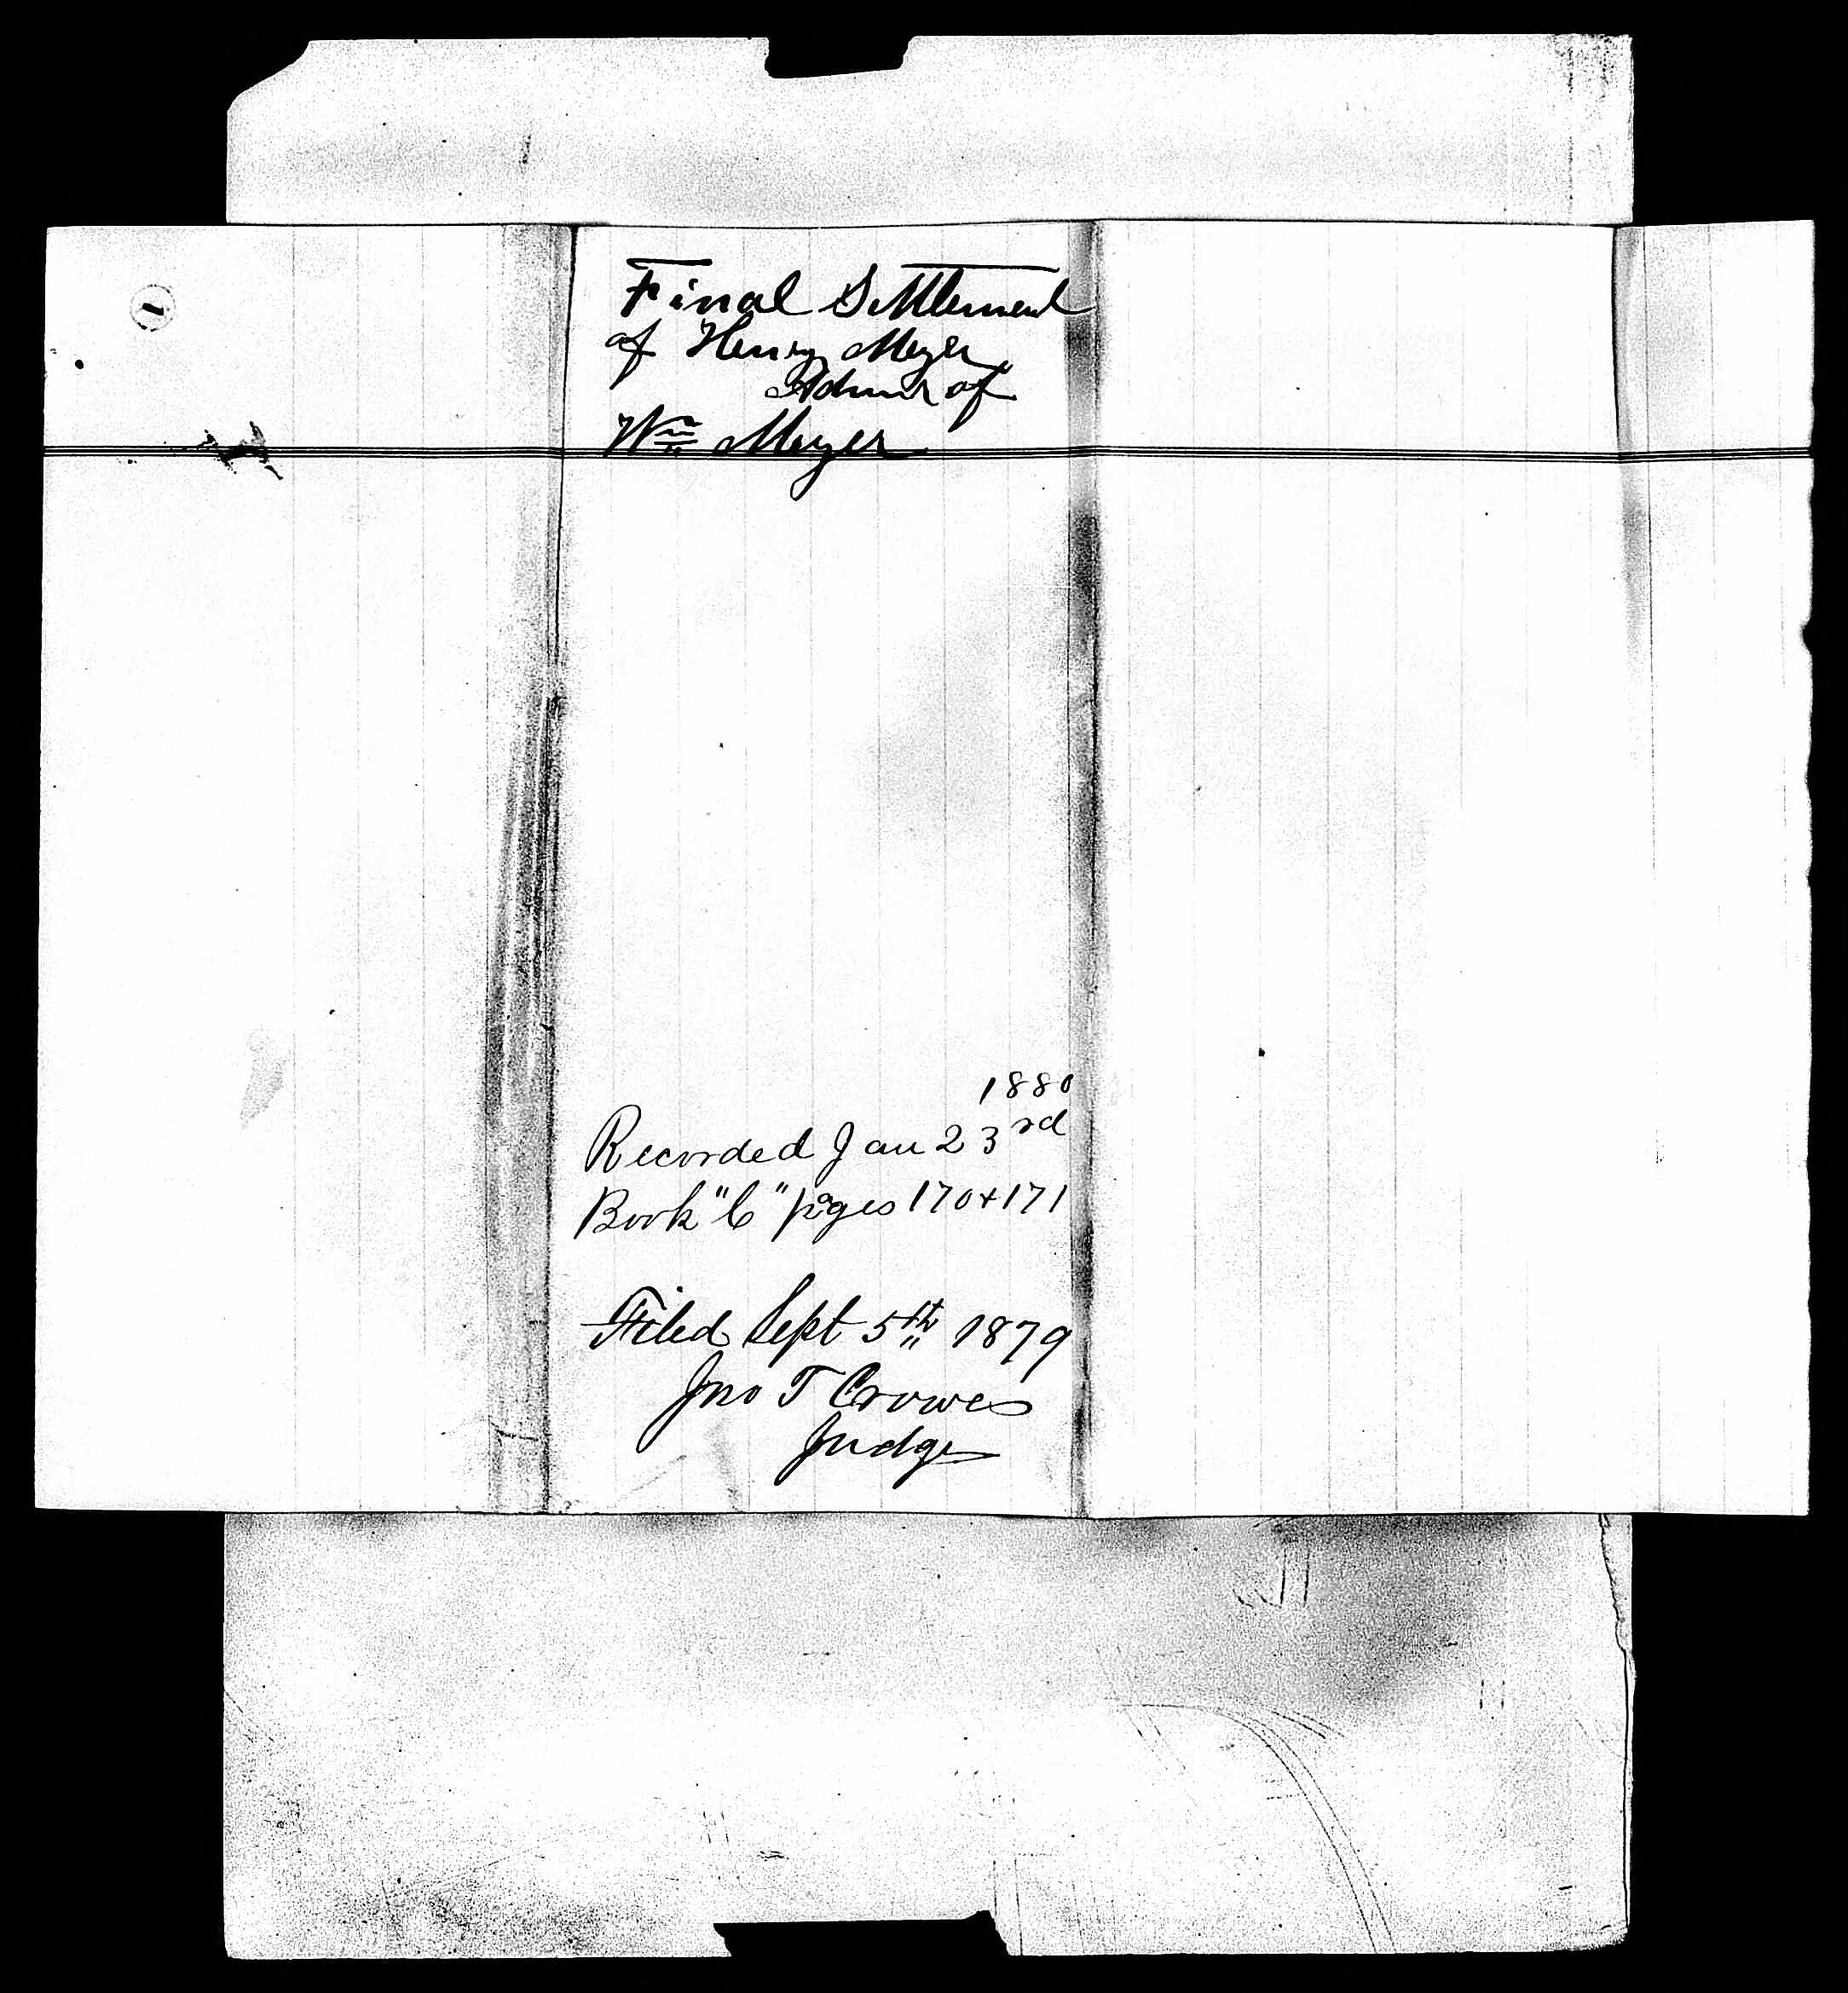 Final Settlement
of Henry Meyer
Admr of
Wm Meyer
1880
Recorded Jan 23rd
Book "C" pages 170 + 171
Filed Sept 5th 1879
Jno T Crowe
Judge